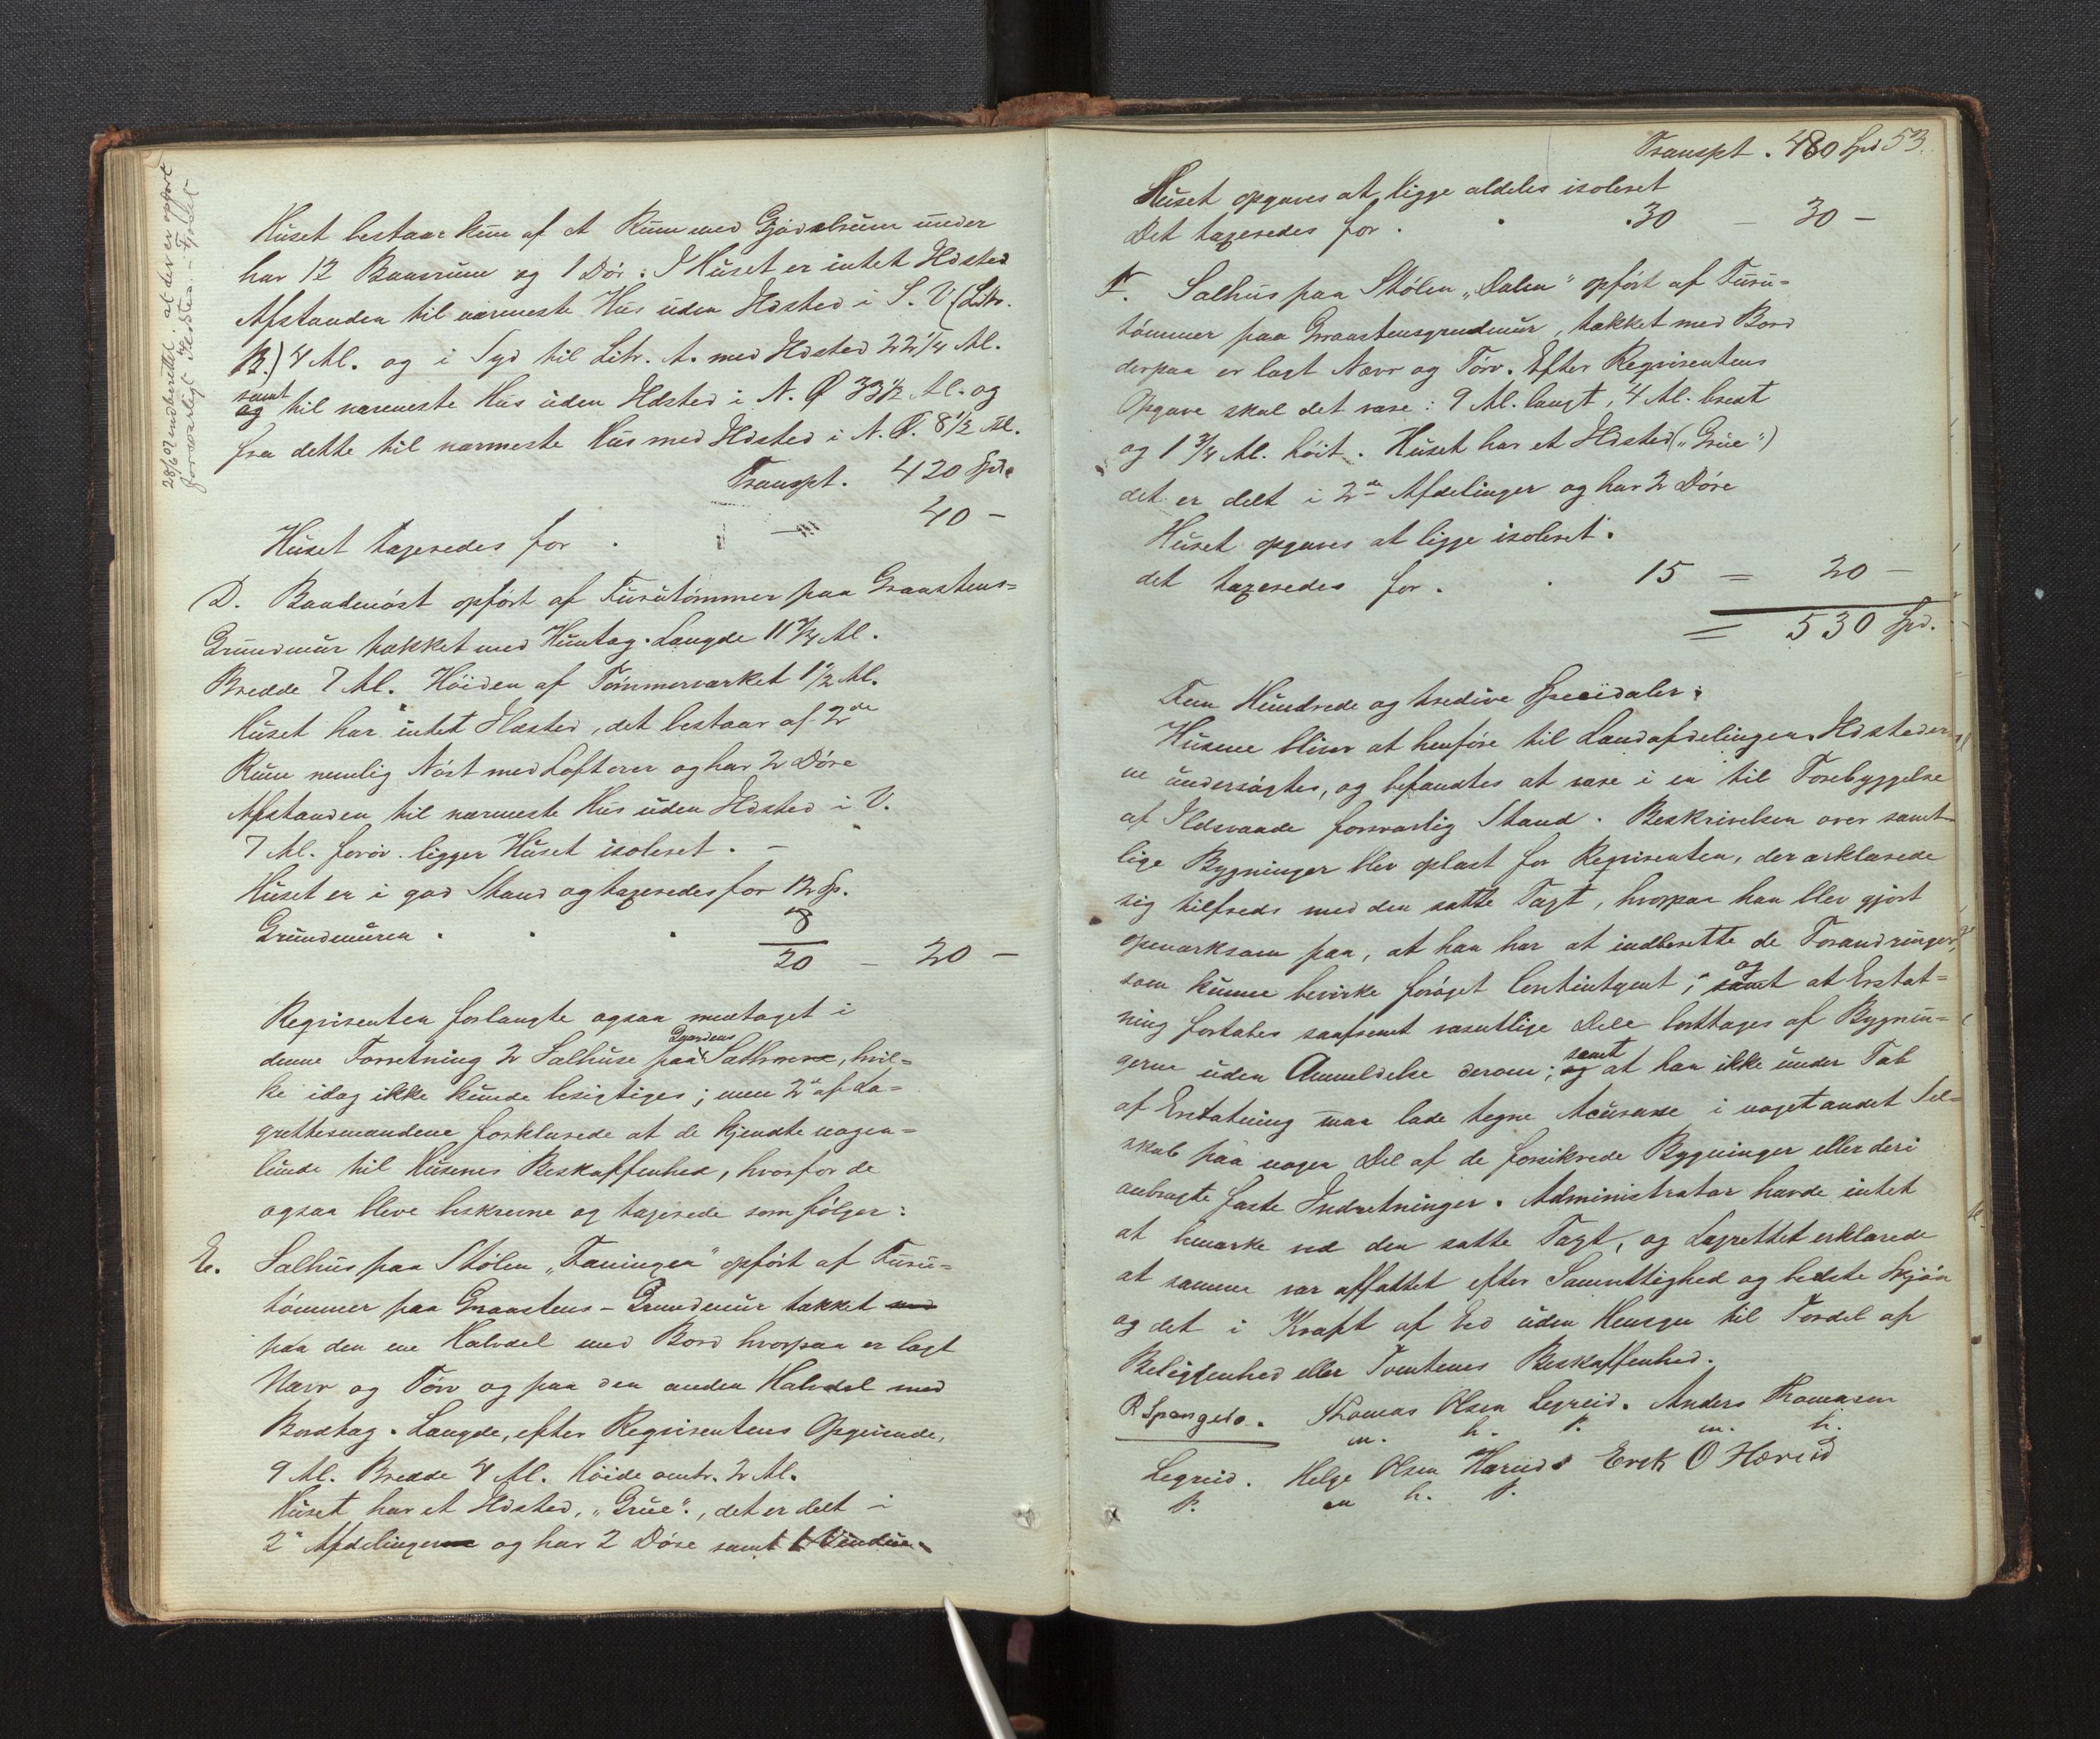 28/6 07 indberettet at der er opført
forsvarligt Ildsted i Fjøset
Huset bestaar kun af et Rum med Gjødselrum under
har 12 Baasrum og 1 Dør. I Huset er intet Ildsted
Afstanden til nærmeste Hus uden Ildsted i S. V (Litr.
B.) 4 Al. og i Syd til Litr. A. med Ildsted 22 1/4 Al.
samt
og til nærmeste Hus uden Ildsted i N. Ø 33 1/2 Al. og
fra dette til nærmeste Hus med Ildsted i N. Ø. 8 1/2 Al.
Transpt. 420 Spd.
Huset taxeredes for . — 40 —
D. Baadenøst opført af Furutømmer paa Graastens=
Grundmur tækket med Huntag. Længde 11 3/4 Al.
Bredde 7 Al. Høiden af Tømmerværket 1 1/2 Al.
Huset har intet Ildsted, det bestaar af 2de
Rum nemlig Nøst med Loft over og har 2 Døre
Afstanden til nærmeste Hus uden Ildsted i V.
7 Al. forøv. ligger Huset isoleret. —
Huset er i god Stand og taxeredes for 12 Sp.
Grundmuren . . . 8
20 — 20 —
Reqvirenten forlangte ogsaa medtaget i
Gaardens
denne Forretning 2 Sælhuse paa Sætrene, hvil=
ke idag ikke kunde besigtiges; men 2de af La=
grettesmændene forklarede at de kjendte nogen=
lunde til Husenes Beskaffenhed, hvorfor de
ogsaa bleve beskrevne og taxerede som følger:
E. Sælhus paa Stølen „Faninger" opført af Furu=
tømmer paa Graastens-Grundmur tækket med
paa den ene Halvdel med Bord hvorpaa er lagt
Næver og Tørv og paa den anden Halvdel med
Bordtag. Længde, efter Reqvirentens Opgivende,
9 Al. Bredde 4 Al. Høide omtr. 2 Al.
Huset har et Ildsted, „Grue", det er delt i
2de Afdelinger og har 2 Døre samt 1 Vindue
Transpt. 480 Spd 53.
Huset opgives at ligge aldeles isoleret
Det taxeredes for . . 30 — 30 —
F. Sælhus paa Stølen „Dalen" opført af Furu=
tømmer paa Graastensgrundmur, tækket med Bord
derpaa er lagt Næver og Tørv. Efter Reqvirentens
Opgave skal det være: 9 Al. langt, 4 Al. bredt
og 1 3/4 Al. høit. Huset har et Ildsted („Grue")
det er delt i 2de Afdelinger og har 2 Døre
Huset opgives at ligge isoleret.
det taxeredes for . . 15 = 20 —
= 530 Spd.
Fem Hundrede og tredive Speciedaler.
Husene bliver at henføre til Landafdelingen. Ildstederne
ne undersøgtes, og befandtes at være i en til Forebyggelse
af Ildsvaade forsvarlig Stand. Beskrivelsen over samt=
lige Bygninger blev oplæst for Reqvirenten, der erklærede
sig tilfreds med den satte Taxt, hvorpaa han blev gjort
opmærksom paa, at han har at indberette de Forandringer,
og
som kunne bevirke forøget Contintgent; samt at Erstat=
ning fortabes saafremt væsentlige Dele borttages af Bygnin=
samt
gerne uden Anmeldelse derom; og at han ikke under Tab
af Erstatning maa lade tegne Assurance i noget andet Sel=
skab paa nogen Del af de forsikrede Bygninger eller deri
anbragte faste Indretninger. Administrator havde intet
at bemærke ved den satte Taxt, og Lagrettet erklærede
at samme var affattet efter Samvittighed og bedste Skjøn
og det i Kraft af Ed uden Hensyn til Fordel af
Beliggenhed eller Tomtenes Beskaffenhed.
R Spangelo. Thomas Olsen Legreid. Anders Thomasen
m. h. P. m. h.
Legreid. Helge Olsen Hæreid. Erik O Hæreid
P. m h. P.